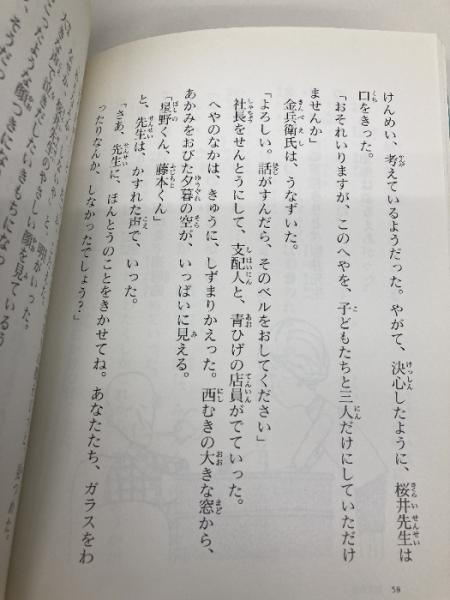 けんめい、考えているようだった。やがて、決心したように、桜井先生は
口をきった。
「おそれいりますが、このへやを、子どもたちと三人だけにしていただけ
ませんか」
金兵衛氏は、うなずいた。
「よろしい。話がすんだら、そのベルをおしてください」
社長をせんとうにして、支配人と、青ひげの店員がでていった。
へやのなかは、きゅうに、しずまりかえった。西むきの大きな窓から、
あかみをおびた夕暮の空が、いっぱいに見える。
「星野くん、藤本くん」
と、先生は、かすれた声で、いった。
「さあ、先生に、ほんとうのことをきかせてね。あなたたち、ガラスをわ
ったりなんか、しなかったでしょう？」
58